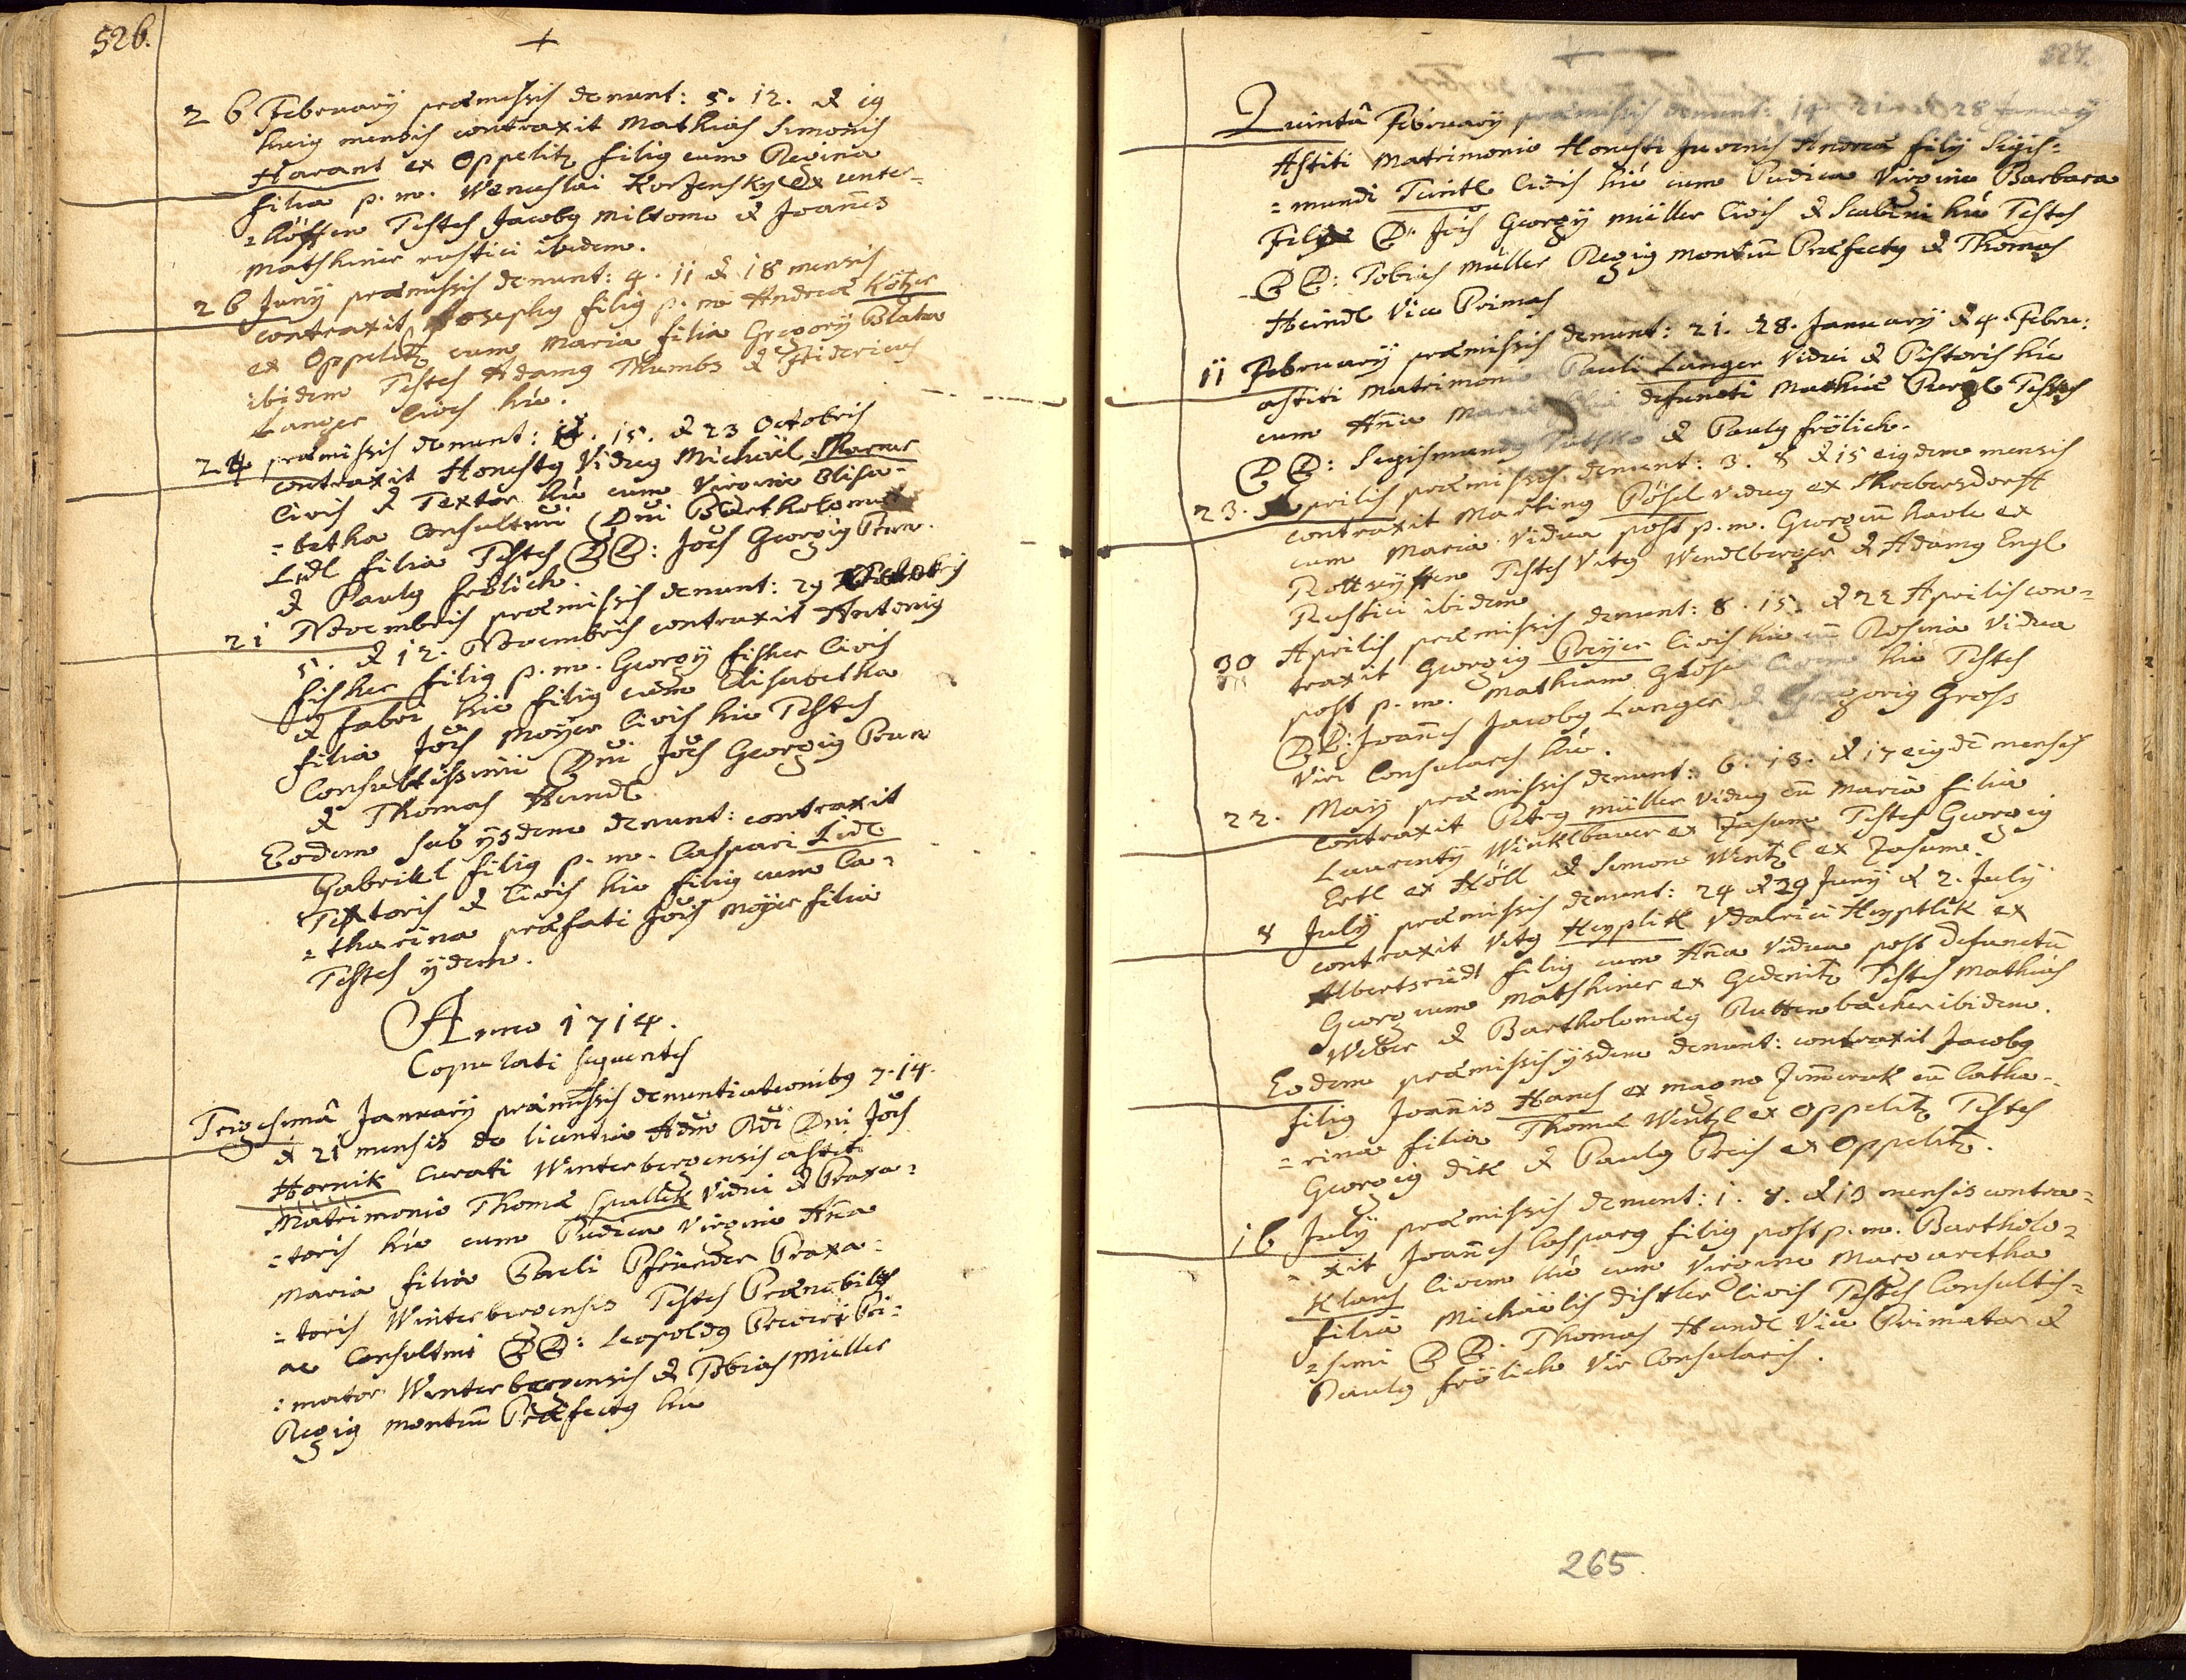 526.
26 February præmissis denunt: 5. 12. & 19
huig mensis contraxit Mathias Simonis
Harant ex Oppelitz filig cum Regina
filia p. m. Wenceslai Korzensky ex Unter-
=köffen Testes Jacobg Miltome & Joañes
Matskiner rustici ibidem.
26 Juny præmissis denunt: 4. 11 & 18 mensis
contraxit Josephg filig p. m. Andreæ Kötzer
ex Oppelitz cum Maria filia Gregorÿ Blaha
ibidem Testes Adamg Thumbs & Fridericus
Langer Cives hic.
24 præmissis denunt: 15. & 23 Octobris
contraxit Honestg Vidug Michaël
Civis & Textor hic cum Virgine Elisa-
=betha Consultmi Dni Bartholomæi
Lidl filia Testes DD: Jões Georgig Prun.
& Paulg Frölich.
21 Novembris præmissis denunt: 29 Octobris
5. & 12. Novembris contraxit Antonig
Fisher filig p. m. Georgÿ Fisher Civis
& fabri hic filig cum Elisabetha
filia Jois Moÿer Civis hic Testes
Consultissimi Dni Jões Georgig Prun
& Thomas Haindl
Eodem sub ÿsdem denunt: contraxit
Gabriel filig p. m. Caspari Lidl
Textoris & Civis hic filig cum Ca-
=tharina præfati Jois Moÿer filia
Testes ÿdem.
Anno 1714.
Copulati sequentes
Trigesimâ January præmissis denuntiationibg 7. 14.
& 21 mensis de licentia Adm Rdi Dni Jois
Hornik Curati Winterbergensis astiti
Matrimonio Thomæ Spallek Vidui & Braxa=
=toris hic cum Pudica Virgine Aña
Maria filia Pauli Pfrinder Braxa=
=toris Winterbergensis Testes Prænobiles
ac Consultmi DD: Leopoldg Pri=
=mator Winterbergensis & Tobias Müller
Regig montiũ Præfectg hic
527.
Quintâ February præmissis denunt: 14 21 & 28 January
Astiti Matrimonio Honesti Juvenis Andreæ filÿ Sigis=
=mundi Civis hic cum Pudica Virgine Barbara
Filia D: Jois Georgÿ Müller Civis & Scabini hic Testes
DD: Tobias Müller Regig montiũ Præfectg & Thomas
Haindl Vice Primas
11 February præmissis denunt: 21. 28. January & 4. Febru:
astiti Matrimonio Pauli Langer Vidui & Pistoris hic
cum Aña Maria filia defuncti Mathiæ Testes
DD: Sigismundg & Paulg Frölich.
23. Aprilis præmissis denunt: 3. 8 & 15 eigdem mensis
contraxit Marting Pösel Vidug ex Shrobersdorff
cum Maria Vidua post p. m. Georgiũ ex
Testes Vitg Wendlberger & Adamg Engl
Rustici ibidem
30 Aprilis præmissis denunt: 8. 15. & 22 Aprilis con-
traxit Georgig Preÿer Civis hic cũ Rosina Vidua
post p. m. Mathiam Civem hic Testes
DD: Joañes Jacobg Langer & Gregorig Gross
Viri Consulares hic.
22. May præmissis denunt: 6. 13. & 17 eigdẽ mensis
contraxit Petrg Müller Vidug cũ Maria filia
Laurentÿ Winklbauer ex Zasum Testes Georgig
Ertl ex Höll & Simon Wentzl ex Zasum
8 July præmissis denunt: 24 & 29 Juny & 2. July
contraxit Vitg Heyplik Vdalrici Heyptlik ex
Albertsriedt filig cum Aña Vidua post defunctũ
Georgium Matskiner ex Gedenitz Testes Mathias
Weber & Bartholomæg Ruttenbacher ibidem.
Eodem præmissis ÿsdem denunt: contraxit Jacobg
filig Joañis Hanes ex magno cũ Catha-
=rina filia Thomæ Wentzl ex Oppelitz Testes
Georgig Dik & Paulg Preis ex Oppelitz.
16 July præmissis denunt: 1. 8. & 13 mensis contra=
=xit Joañes Casparg filig post p. m. Bartholo=
Klaus Civem hic cum Virgine Margaretha
filia Michäelis Distler Civis Testes Consultis=
=simi DD. Thomas Haindl Vice Primator &
Paulg Frölich Vir Consularis.
265.